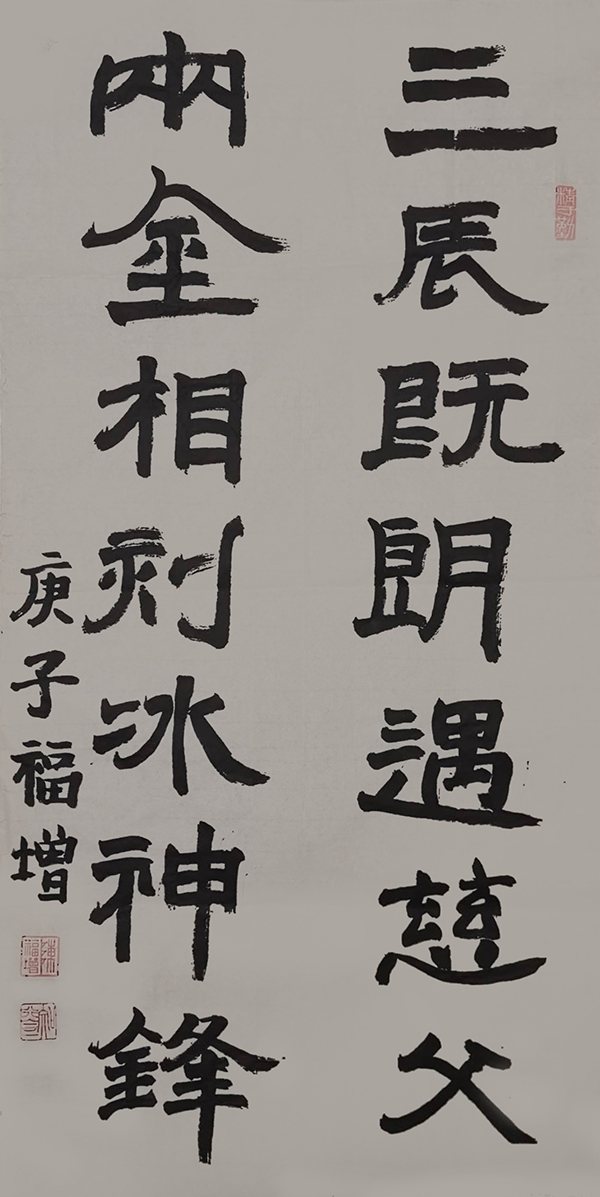 三辰既朗遇慈父
两金相刻冰神鋒
庚子福增